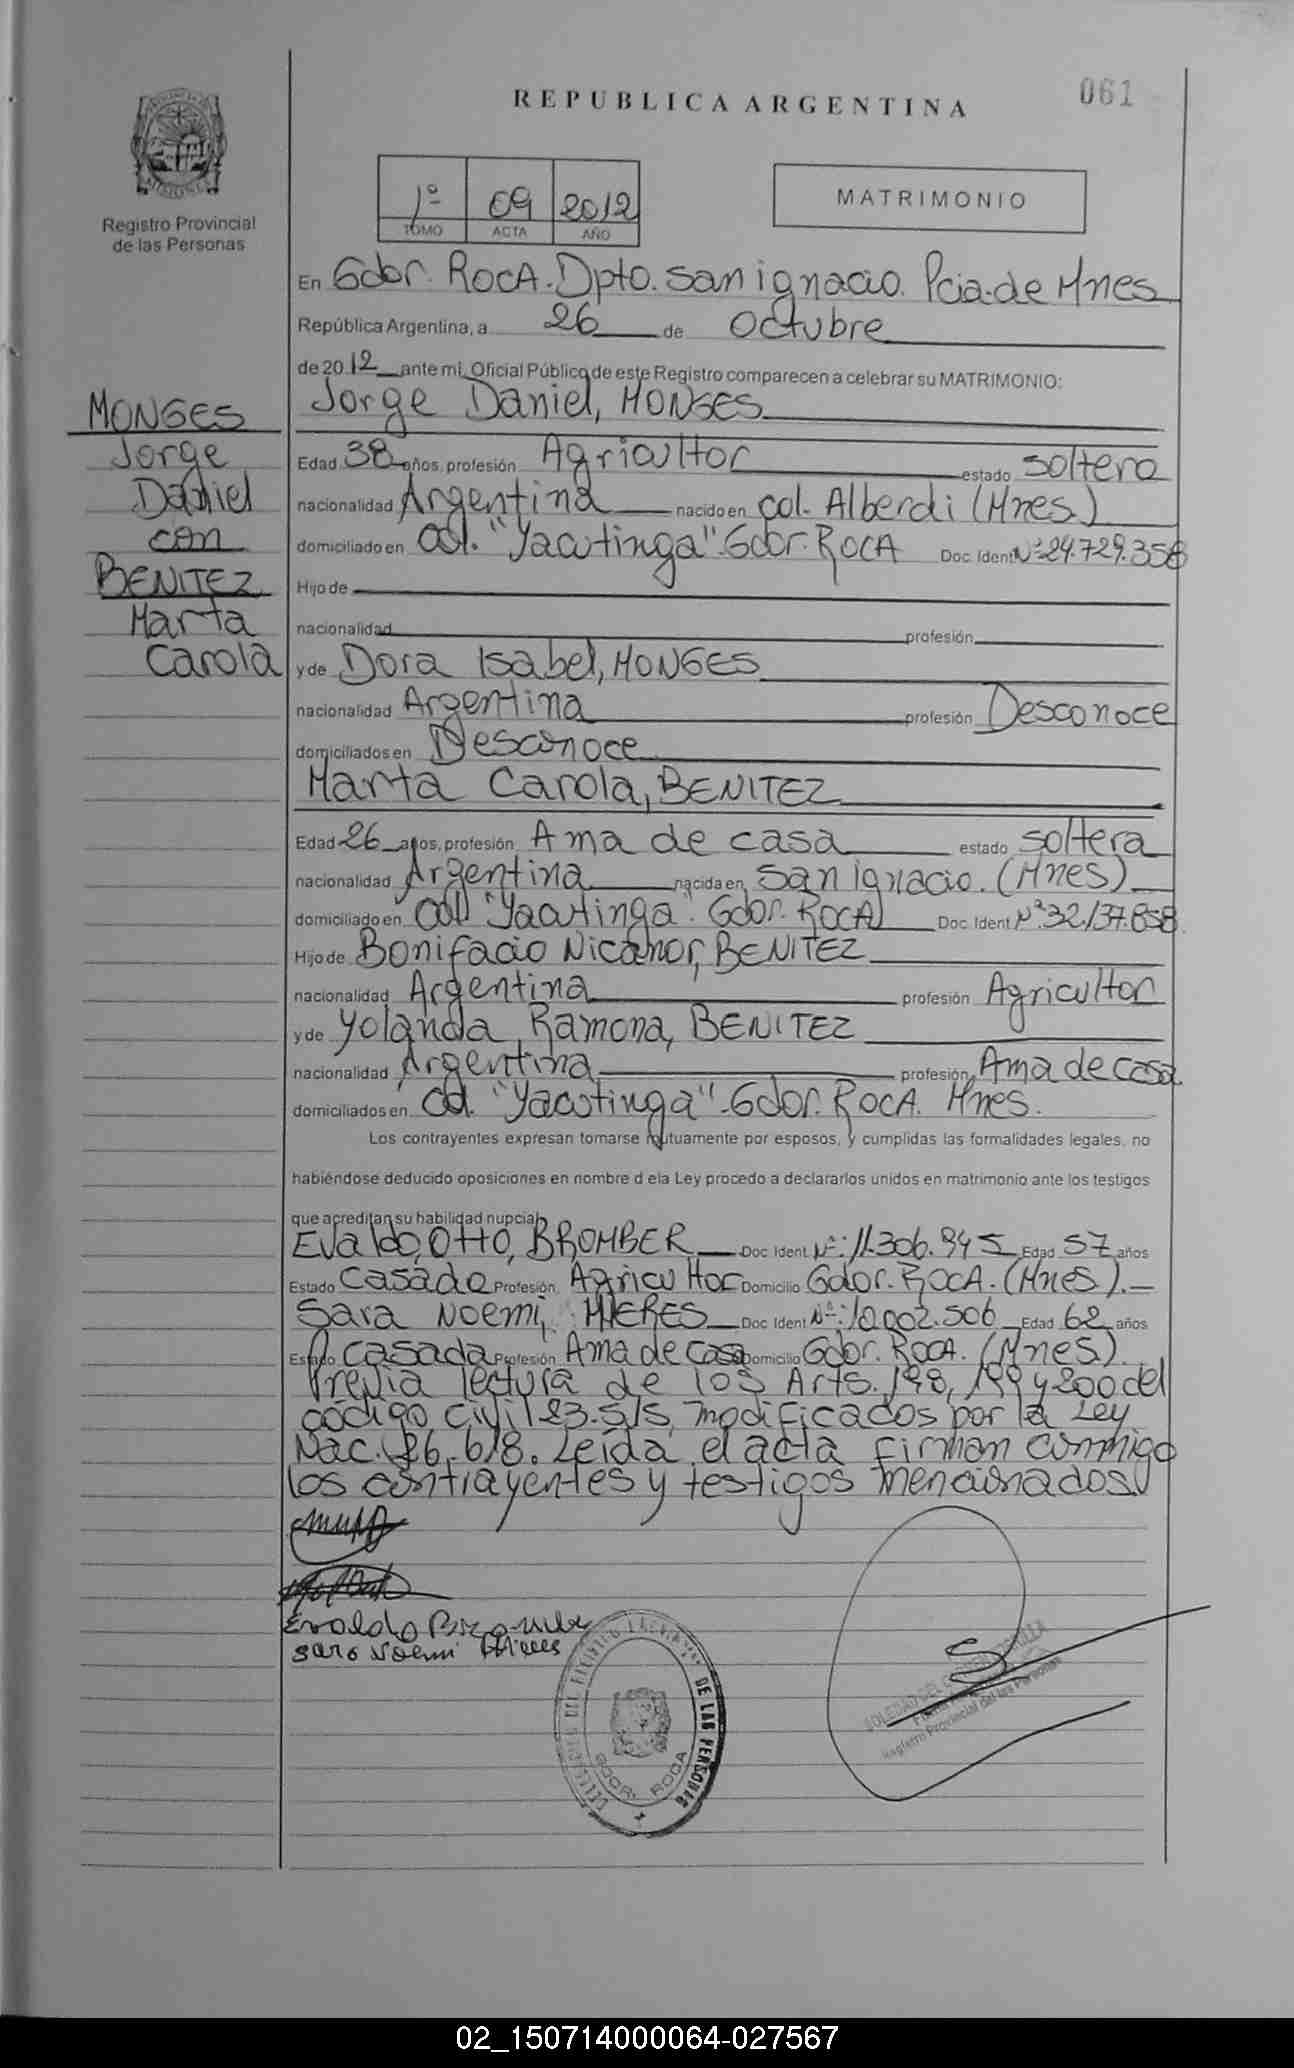 REPUBLICA ARGENTINA
061
Registro Provincial
de las Personas
1º 09 2012
TOMO ACTA AÑO
MATRIMONIO
En Gdor. ROCA. Dpto. San ignacio. Pcia. de Mnes
República Argentina, a 26 de Octubre
de 2012 ante mi, Oficial Público de este Registro comparecen a celebrar su MATRIMONIO:
MONGES
Jorge
Daniel
con
BENITEZ
Marta
Carola
Jorge Daniel, MONGES
Edad 38 años, profesión Agricultor estado soltero
nacionalidad Argentina nacido en Col. Alberdi (Mnes)
domiciliado en Col. "Yacutinga". Gdor. ROCA Doc. Ident Nº 24.729.358
Hijo de
nacionalidad profesión
y de Dora Isabel, MONGES
nacionalidad Argentina profesión Desconoce
domiciliados en Desconoce
Marta Carola, BENITEZ
Edad 26 años, profesión Ama de casa estado soltera
nacionalidad Argentina nacida en San Ignacio. (Mnes)
domiciliado en Col "Yacutinga". Gdor. ROCA Doc. Ident Nº 32.137.858
Hijo de Bonifacio Nicanor, BENITEZ
nacionalidad Argentina profesión Agricultor
y de Yolanda Ramona, BENITEZ
nacionalidad Argentina profesión Ama de casa
domiciliados en Col. "Yacutinga". Gdor. ROCA. Mnes.
Los contrayentes expresan tomarse mutuamente por esposos, y cumplidas las formalidades legales, no
habiéndose deducido oposiciones en nombre d ela Ley procedo a declararlos unidos en matrimonio ante los testigos
que acreditan su habilidad nupcial
Evaldo, Otto, BROMBER Doc. Ident Nº: 11.306.945 Edad 57 años
Estado Casado Profesión Agricultor Domicilio Gdor. ROCA. (Mnes).
Sara Noemi, MIERES Doc. Ident Nº: 10.002.506 Edad 62 años
Estado Casada Profesión Ama de Casa Domicilio Gdor. ROCA. (Mnes).
Previa lectura de los Arts. 198, 199 y 200 del
código civil 23.515, modificados por la Ley
Nac. 26.618. Leida el acta firman conmigo
los contrayentes y testigos mencionados
Evaldo
Sara Noemi Mieres
DE LAS PERSONAS
GDOR. ROCA
SOLEDAD DEL
Registro Provincial de las Personas
02_150714000064-027567